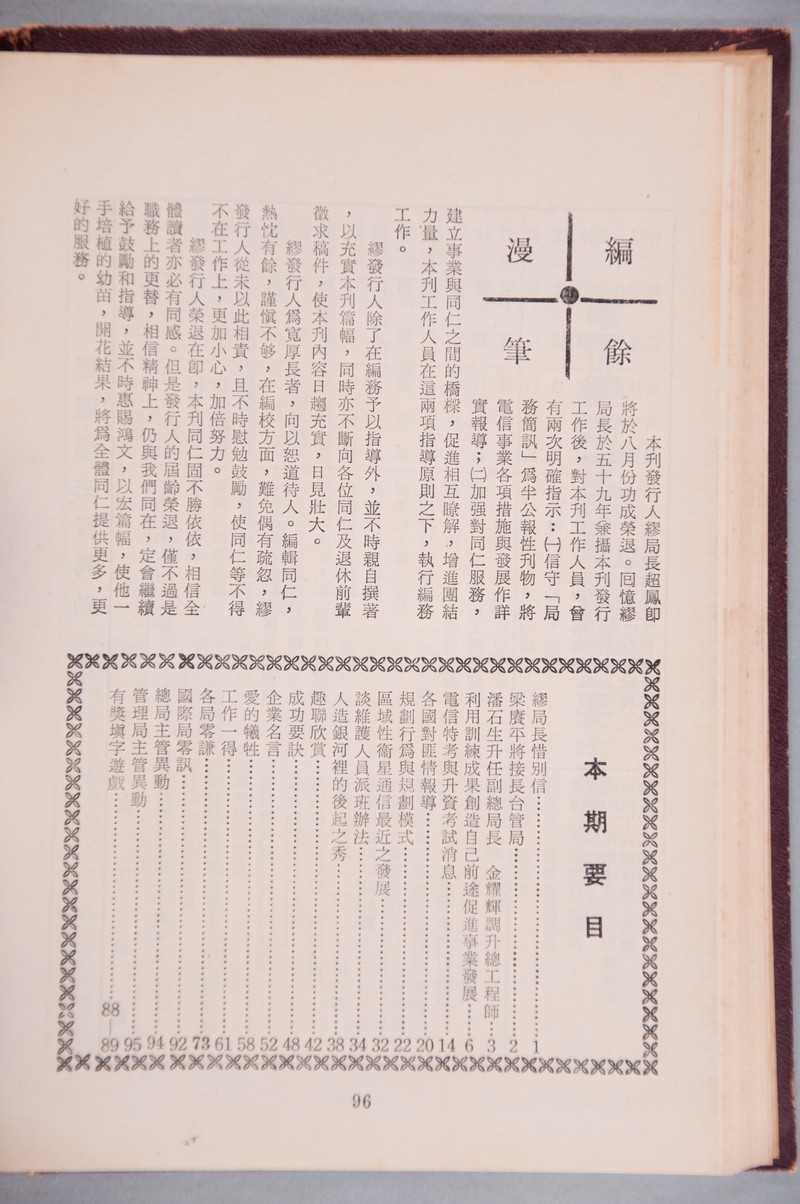 編餘
漫筆
本刊發行人繆局長超鳳卽
將於八月份功成榮退。囘憶繆
局長於五十九年兼攝本刊發行
工作後，對本刊工作人員，曾
有兩次明確指示：㈠信守「局
務簡訊」爲半公報性刊物，將
電信事業各項措施與發展作詳
實報導；㈡加强對同仁服務，
建立事業與同仁之間的橋樑，促進相互瞭解，增進團結
力量，本刊工作人員在這兩項指導原則之下，執行編務
工作。
繆發行人除了在編務予以指導外，並不時親自撰著
，以充實本刊篇幅，同時亦不斷向各位同仁及退休前輩
徵求稿件，使本刊內容日趨充實，日見壯大。
繆發行人爲寬厚長者，向以恕道待人。編輯同仁，
熱忱有餘，謹愼不够，在編校方面，難免偶有疏忽，繆
發行人從未以此相責，且不時慰勉鼓勵，使同仁等不得
不在工作上，更加小心，加倍努力。
繆發行人榮退在卽，本刊同仁固不勝依依，相信全
體讀者亦必有同感。但是發行人的屆齡榮退，僅不過是
職務上的更替，相信精神上，仍與我們同在，定會繼續
給予鼓勵和指導，並不時惠賜鴻文，以宏篇幅，使他一
手培植的幼苗，開花結果，將爲全體同仁提供更多，更
好的服務。
本期要目
繆局長惜別信…………1
梁賡平將接長台管局…………2
潘石生升任副總局長　金耀輝調升總工程師…………3
利用訓練成果創造自己前途促進事業發展…………6
電信特考與升資考試消息…………14
各國對匪情報導…………20
規劃行爲與規劃模式…………22
區域性衞星通信最近之發展…………32
談維護人員派班辦法…………34
人造銀河裡的後起之秀…………38
趣聯欣賞…………42
成功要訣…………48
企業名言…………52
愛的犧牲…………58
工作一得…………61
各局零謙…………73
國際局零訊…………92
總局主管異動…………94
管理局主管異動…………95
有獎塡字遊戲…………88—89
96